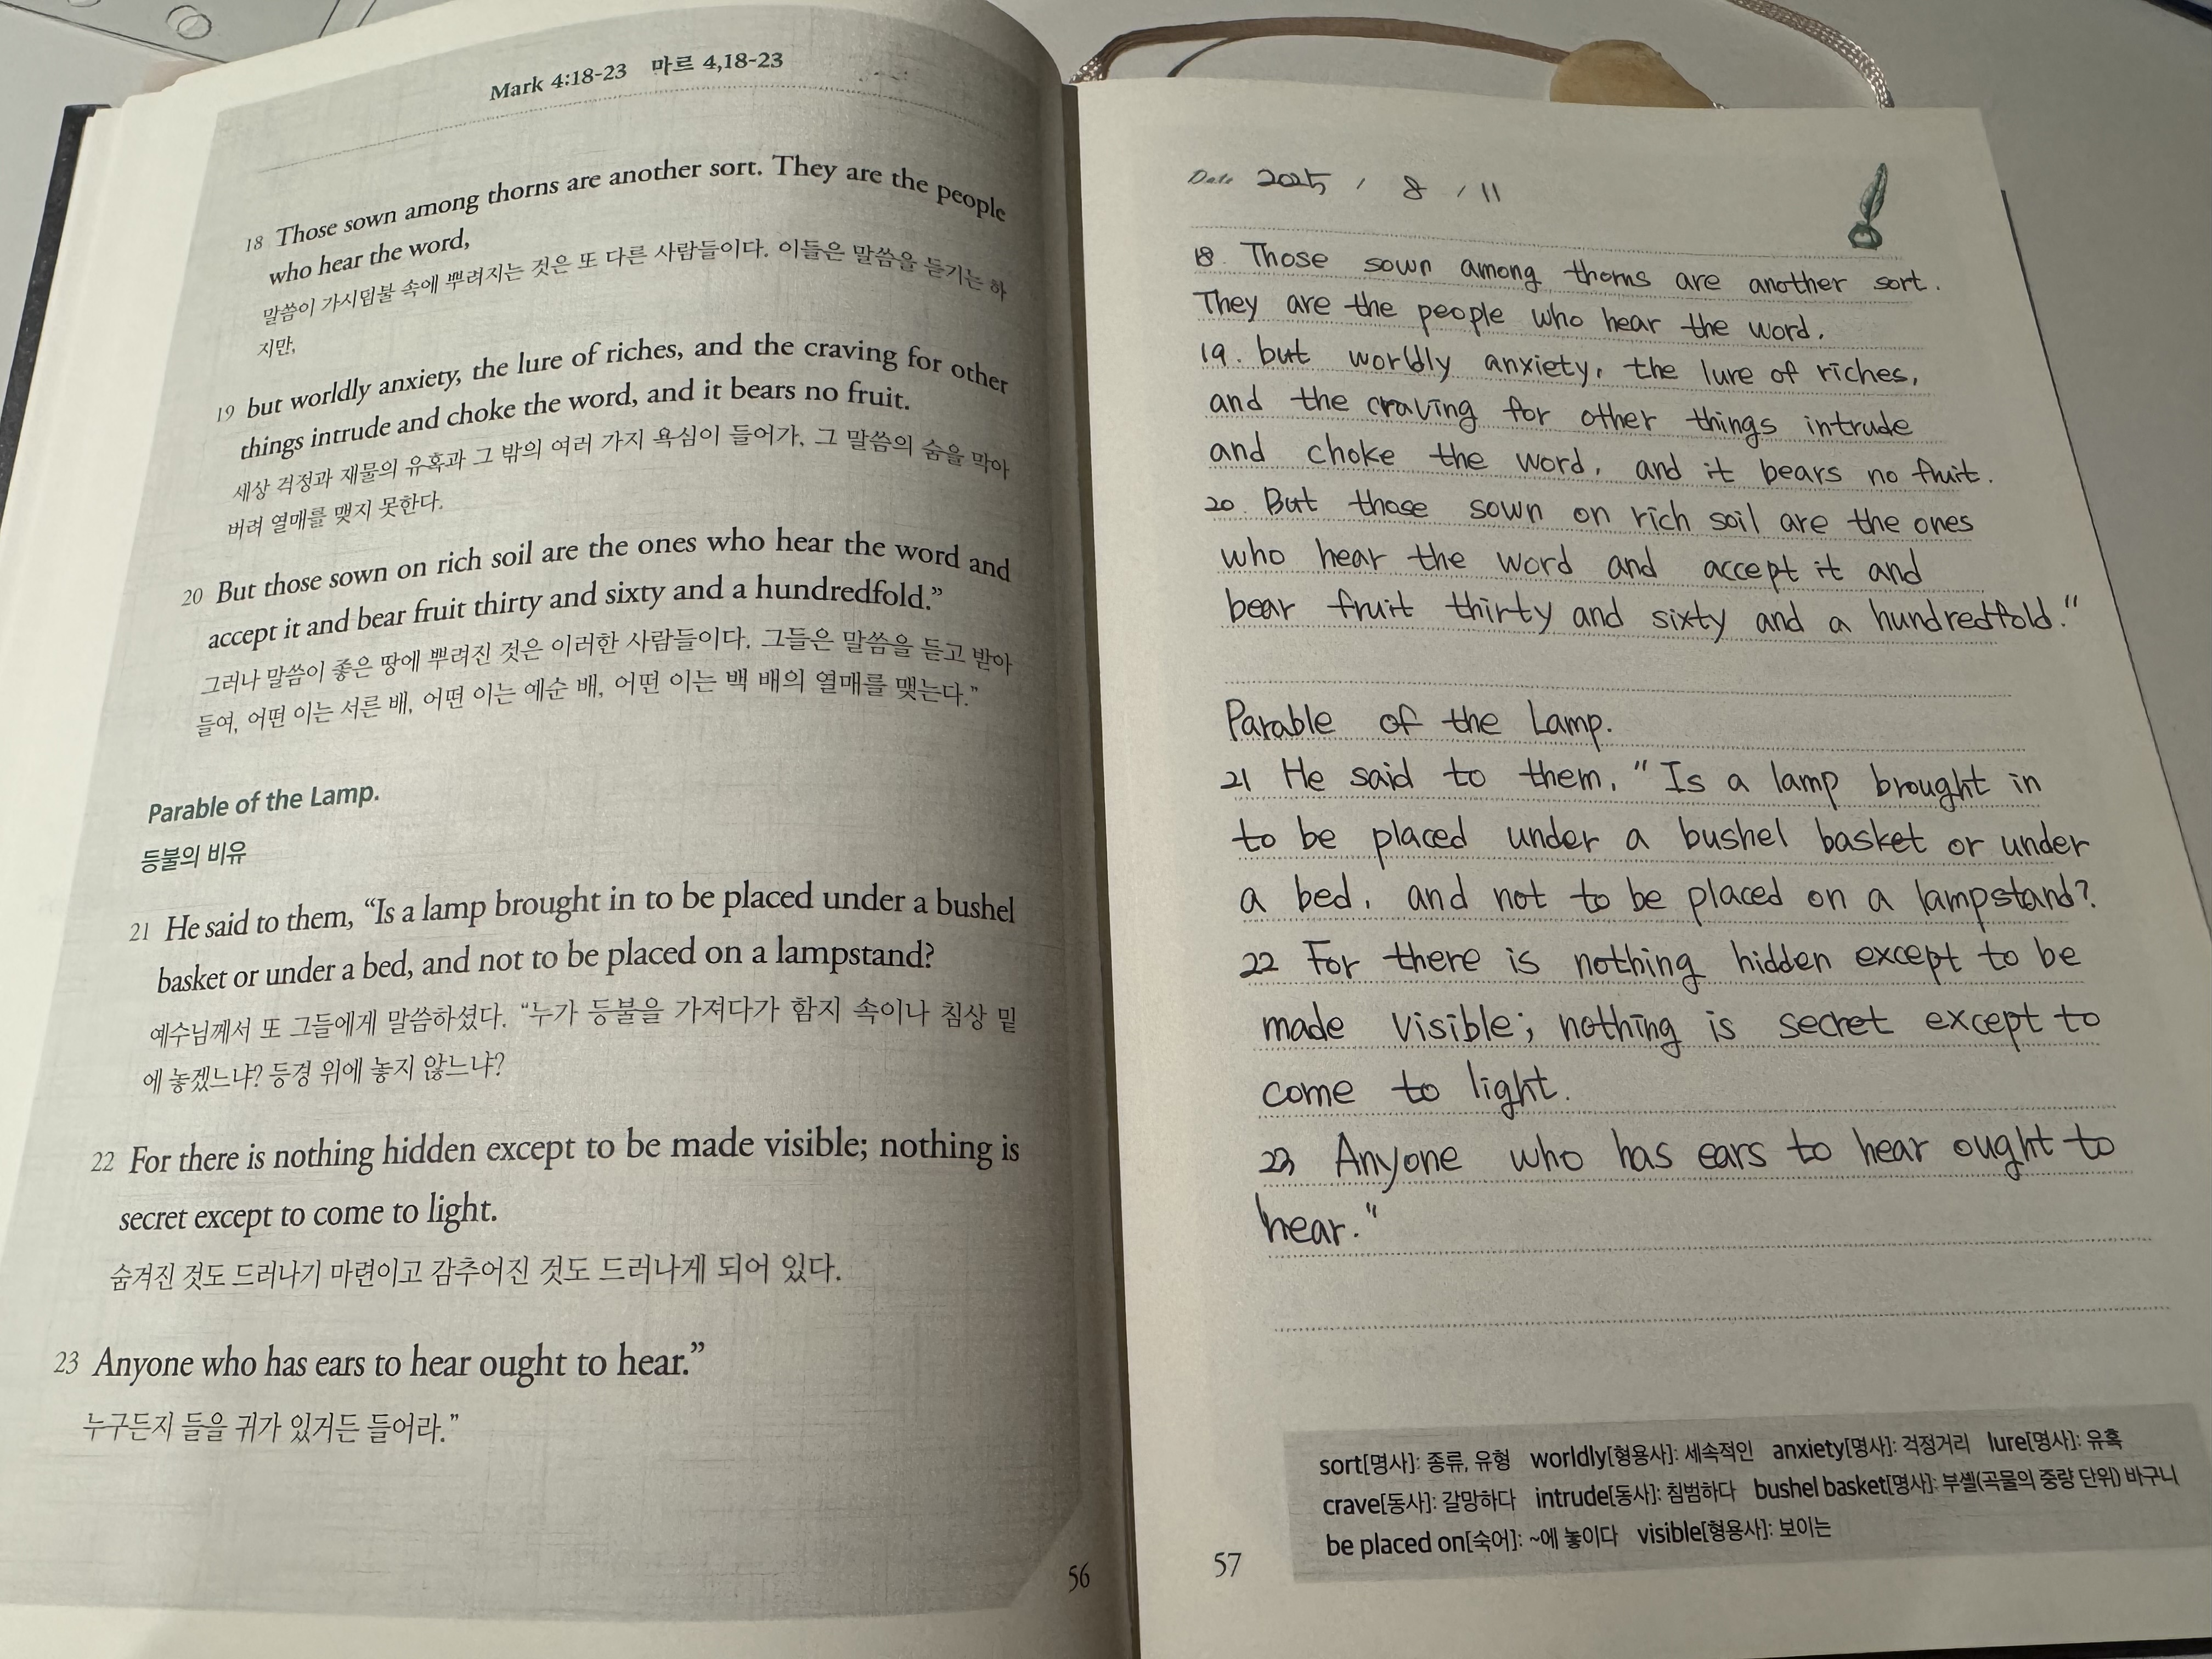 Mark 4:18-23 마르 4,18-23
18 Those sown among thorns are another sort. They are the people
who hear the word,
말씀이 가시덤불 속에 뿌려지는 것은 또 다른 사람들이다. 이들은 말씀을 듣기는 하
지만,
19 but worldly anxiety, the lure of riches, and the craving for other
things intrude and choke the word, and it bears no fruit.
세상 걱정과 재물의 유혹과 그 밖의 여러 가지 욕심이 들어가, 그 말씀의 숨을 막아
버려 열매를 맺지 못한다.
20 But those sown on rich soil are the ones who hear the word and
accept it and bear fruit thirty and sixty and a hundredfold.”
그러나 말씀이 좋은 땅에 뿌려진 것은 이러한 사람들이다. 그들은 말씀을 듣고 받아
들여, 어떤 이는 서른 배, 어떤 이는 예순 배, 어떤 이는 백 배의 열매를 맺는다.”
Parable of the Lamp.
등불의 비유
21 He said to them, “Is a lamp brought in to be placed under a bushel
basket or under a bed, and not to be placed on a lampstand?
예수님께서 또 그들에게 말씀하셨다. “누가 등불을 가져다가 함지 속이나 침상 밑
에 놓겠느냐? 등경 위에 놓지 않느냐?
22 For there is nothing hidden except to be made visible; nothing is
secret except to come to light.
숨겨진 것도 드러나기 마련이고 감추어진 것도 드러나게 되어 있다.
23 Anyone who has ears to hear ought to hear.”
누구든지 들을 귀가 있거든 들어라.”
56
Date 2025 / 8 / 11
18. Those sown among thorns are another sort.
They are the people who hear the word.
19. but worldly anxiety, the lure of riches,
and the craving for other things intrude
and choke the word, and it bears no fruit.
20. But those sown on rich soil are the ones
who hear the word and accept it and
bear fruit thirty and sixty and a hundredfold."
Parable of the Lamp.
21 He said to them, "Is a lamp brought in
to be placed under a bushel basket or under
a bed, and not to be placed on a lampstand?
22 For there is nothing hidden except to be
made visible; nothing is secret except to
come to light.
23 Anyone who has ears to hear ought to
hear."
sort[명사]: 종류, 유형 worldly[형용사]: 세속적인 anxiety[명사]: 걱정거리 lure[명사]: 유혹
crave[동사]: 갈망하다 intrude[동사]: 침범하다 bushel basket[명사]: 부셸(곡물의 중량 단위) 바구니
be placed on[숙어]: ~에 놓이다 visible[형용사]: 보이는
57